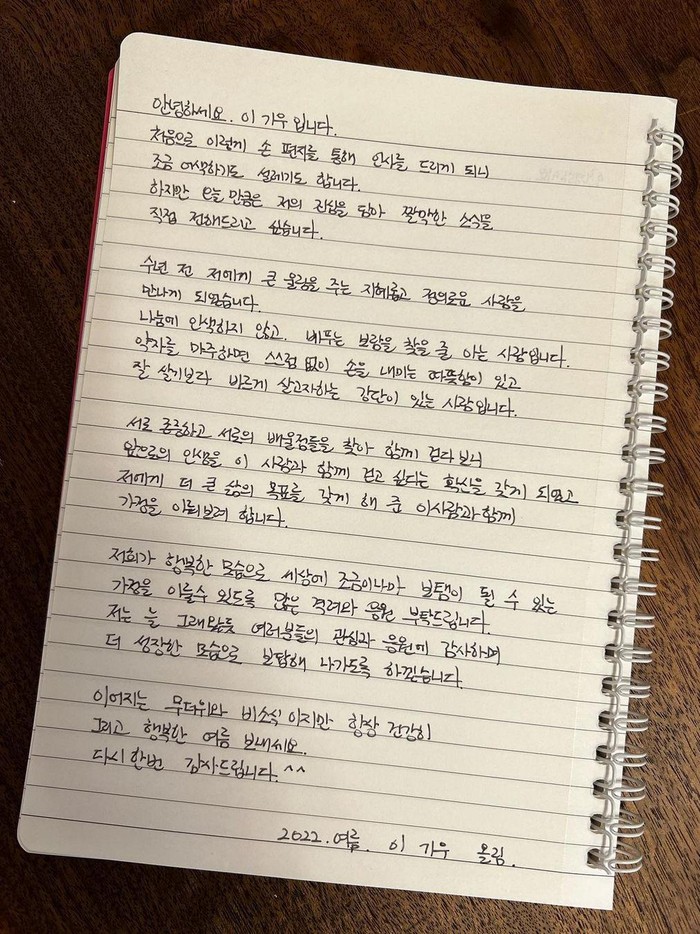 안녕하세요. 이 가우 입니다.
처음으로 이렇게 손 편지를 통해 인사를 드리게 되니
조금 어색하기도 설레기도 합니다.
하지만 오늘 만큼은 저의 진심을 담아 짤막한 소식을
직접 전해드리고 싶습니다.
수년 전 저에게 큰 울림을 주는 지혜롭고 정의로운 사람을
만나게 되었습니다.
나눔에 인색하지 않고. 베푸는 보람을 찾을 줄 아는 사람입니다.
약자를 마주하면 스스럼 없이 손을 내미는 따뜻함이 있고
잘 살기보다 바르게 살고자하는 강단이 있는 사람입니다.
서로 존중하고 서로의 배울점들을 찾아 함께 걷다보니
앞으로의 인생을 이 사람과 함께 걷고 싶다는 확신을 갖게 되었고
저에게 더 큰 삶의 목표를 갖게 해 준 이사람과 함께
가정을 이뤄보려 합니다.
저희가 행복한 모습으로 세상에 조금이나마 보탬이 될 수 있는
가정을 이룰수 있도록 많은 격려와 응원 부탁드립니다.
저는 늘 그래왔듯 여러분들의 관심과 응원에 감사하며
더 성장한 모습으로 보답해 나가도록 하겠습니다.
이어지는 무더위와 비소식 이지만 항상 건강히
그리고 행복한 여름 보내세요.
다시한번 감사드립니다. ^^
2022. 여름. 이 가우 올림.